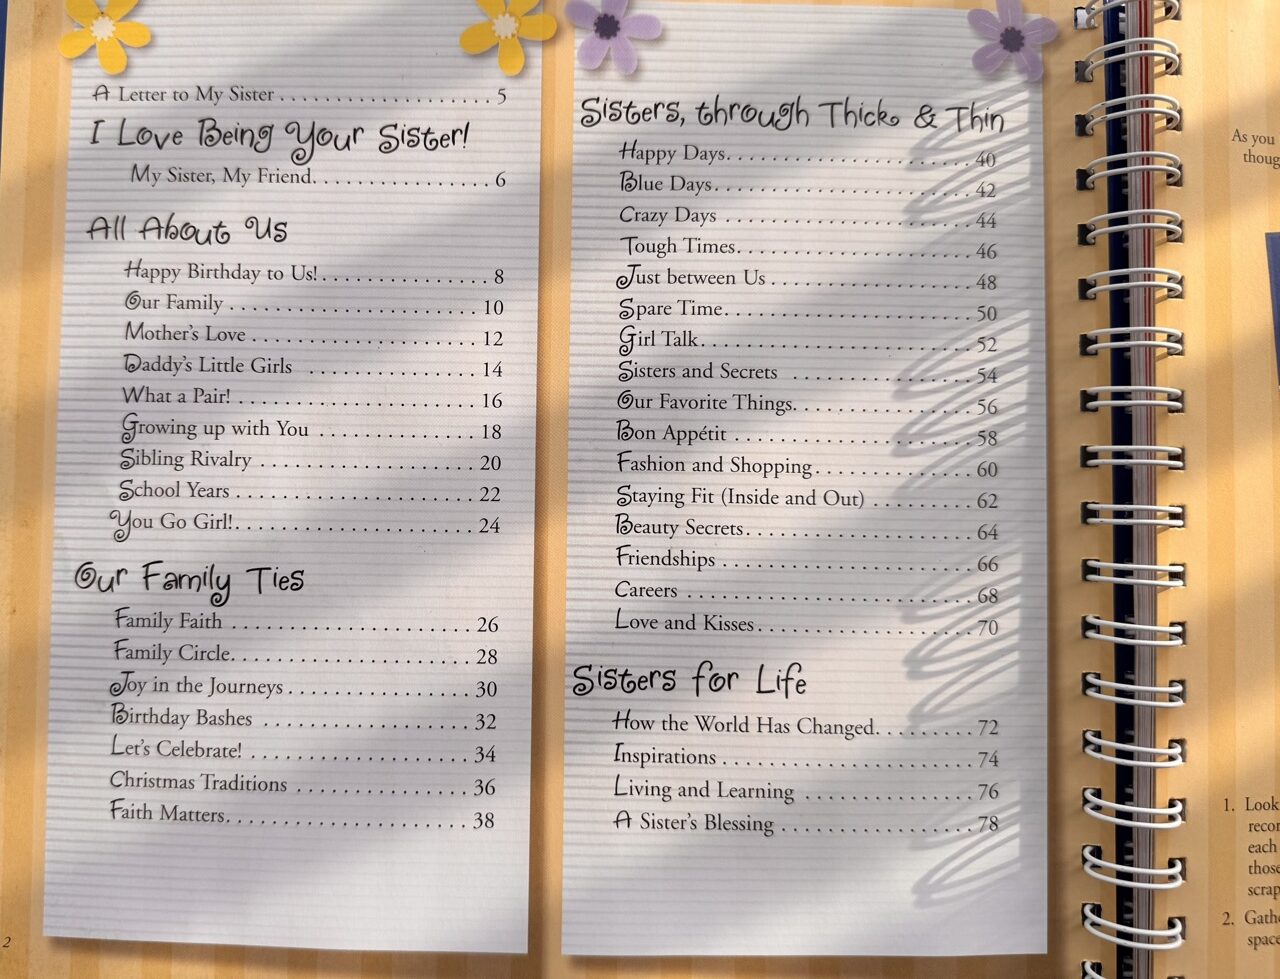 A Letter to My Sister . . . . . . . . . . . . . . . . . . . 5
I Love Being Your Sister!
My Sister, My Friend. . . . . . . . . . . . . . . . 6
All About Us
Happy Birthday to Us! . . . . . . . . . . . . . . . 8
Our Family . . . . . . . . . . . . . . . . . . . . . . 10
Mother's Love . . . . . . . . . . . . . . . . . . . . 12
Daddy's Little Girls . . . . . . . . . . . . . . . 14
What a Pair! . . . . . . . . . . . . . . . . . . . . . 16
Growing up with You . . . . . . . . . . . . . . 18
Sibling Rivalry . . . . . . . . . . . . . . . . . . . 20
School Years . . . . . . . . . . . . . . . . . . . . . 22
You Go Girl! . . . . . . . . . . . . . . . . . . . . . 24
Our Family Ties
Family Faith . . . . . . . . . . . . . . . . . . . . . 26
Family Circle. . . . . . . . . . . . . . . . . . . . . 28
Joy in the Journeys . . . . . . . . . . . . . . . . 30
Birthday Bashes . . . . . . . . . . . . . . . . . . 32
Let's Celebrate! . . . . . . . . . . . . . . . . . . . 34
Christmas Traditions . . . . . . . . . . . . . . . 36
Faith Matters. . . . . . . . . . . . . . . . . . . . . 38
2
Sisters, through Thick & Thin
Happy Days. . . . . . . . . . . . . . . . . . . . . . 40
Blue Days. . . . . . . . . . . . . . . . . . . . . . . 42
Crazy Days . . . . . . . . . . . . . . . . . . . . . . 44
Tough Times. . . . . . . . . . . . . . . . . . . . . 46
Just between Us . . . . . . . . . . . . . . . . . . 48
Spare Time. . . . . . . . . . . . . . . . . . . . . . 50
Girl Talk. . . . . . . . . . . . . . . . . . . . . . . . 52
Sisters and Secrets . . . . . . . . . . . . . . . . 54
Our Favorite Things. . . . . . . . . . . . . . . . 56
Bon Appétit . . . . . . . . . . . . . . . . . . . . . 58
Fashion and Shopping. . . . . . . . . . . . . . 60
Staying Fit (Inside and Out) . . . . . . . . . 62
Beauty Secrets. . . . . . . . . . . . . . . . . . . . 64
Friendships . . . . . . . . . . . . . . . . . . . . . . 66
Careers . . . . . . . . . . . . . . . . . . . . . . . . . 68
Love and Kisses . . . . . . . . . . . . . . . . . . . 70
Sisters for Life
How the World Has Changed. . . . . . . . . 72
Inspirations . . . . . . . . . . . . . . . . . . . . . . 74
Living and Learning . . . . . . . . . . . . . . . 76
A Sister's Blessing . . . . . . . . . . . . . . . . . 78
As you
1. Look
each
those
2.